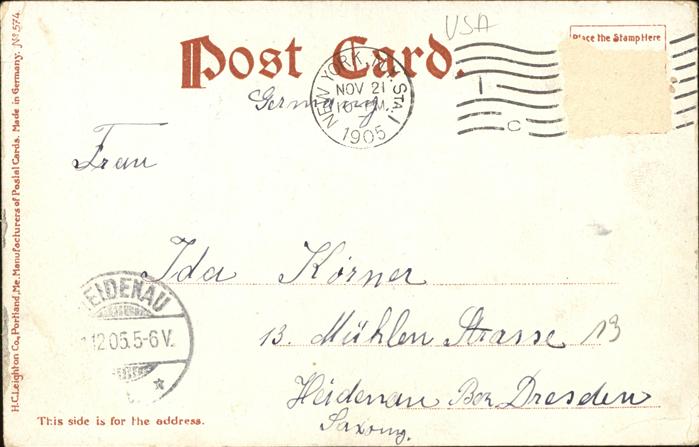 USA
Place the Stamp Here
Post Card.
NEW YORK, N.Y. STA. I
NOV 21
1905
C
Germany
Frau
Ida Körner
13. Mühlen Strasse 13
Heidenau Bez Dresden
Saxony.
HEIDENAU
12.05.5-6V.
This side is for the address.
H.C. Leighton Co., Portland, Me. Manufacturers of Postal Cards. Made in Germany. No 574